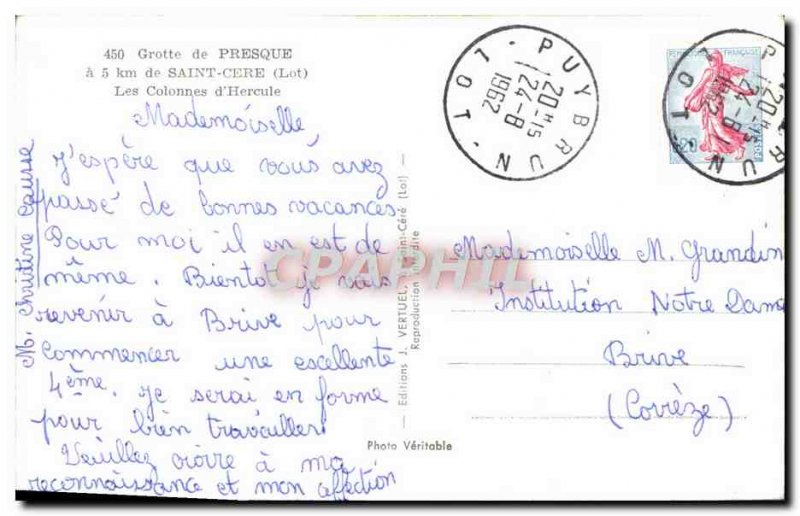 450 Grotte de PRESQUE
à 5 km de SAINT-CERE (Lot)
Les Colonnes d'Hercule
Mademoiselle,
J'espère que vous avez
passé de bonnes vacances
Pour moi il en est de
même. Bientot je vais
revenir à Brive pour
commencer une excellente
4ème. Je serai en forme
pour bien travailler.
Veuillez croire à ma
reconnaissance et mon affection
M. Christine
Editions J. VERTUEL, Saint-Céré (Lot)
Reproduction interdite
Photo Véritable
CPAPHIL
PUYBRUN
LOT
20 H 15
24-8
1962
REPUBLIQUE FRANÇAISE
0,20
POSTES
PUYBRUN
LOT
20 H 15
24-8
1962
Mademoiselle M. Grandin
Institution Notre Dame
Brive
(Corrèze)